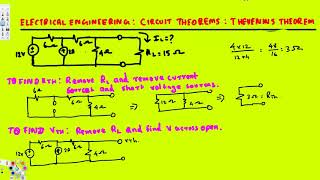 ELECTRICAL ENGINEERING: CIRCUIT THEOREMS: THEVENIN'S THEOREM
6Ω 6Ω IL=?
12V 2A 4Ω RL=15Ω
4x12 / 12+4 = 4x12 / 16 = 3Ω
TO FIND RTH: Remove RL and remove current
sources and short voltage sources.
6Ω 6Ω
4Ω ⇒ 12Ω 4Ω ⇒ 3Ω=RTH
TO FIND VTH: Remove RL and find V across open.
6Ω 6Ω VTH.
12V 2A 4Ω